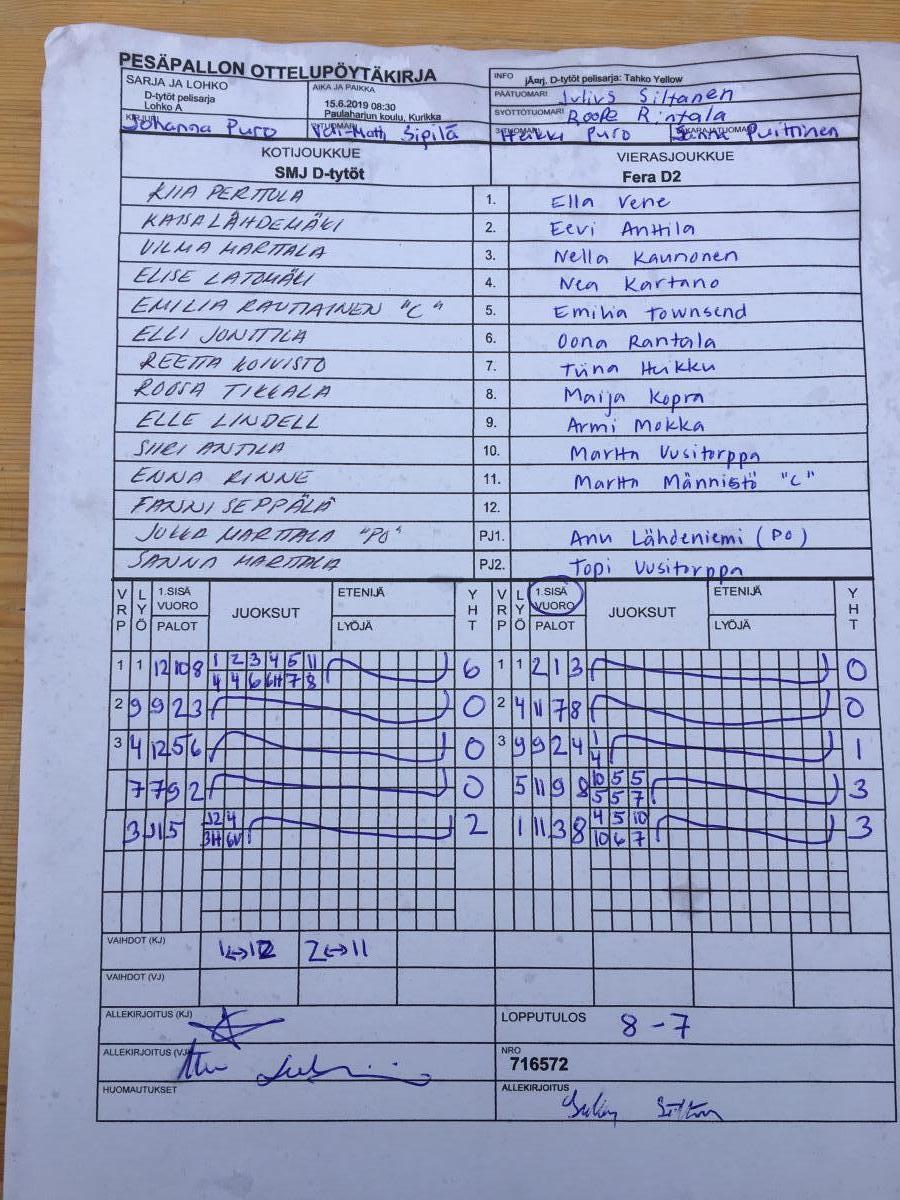 PESÄPALLON OTTELUPÖYTÄKIRJA
SARJA JA LOHKO
D-tytöt pelisarja
Lohko A
AIKA JA PAIKKA
15.6.2019 08:30
Paulaharjun koulu, Kurikka
INFO jÄrj. D-tytöt pelisarja: Tahko Yellow
PÄÄTUOMARI Julius Siltanen
SYÖTTÖTUOMARI Roope Rintala
KIRJURI Johanna Puro
2-TUOMARI Vesi-Matti Sipilä
3-TUOMARI Heikki Puro
TAKARAJATUOMARI Sanna Puittinen
KOTIJOUKKUE
SMJ D-tytöt
VIERASJOUKKUE
Fera D2
KIIA PERTTULA 1. Ella Vene
KAISA LÄHDEMÄKI 2. Eevi Anttila
VILMA MARTTALA 3. Nella Kaunonen
ELISE LATOMÄKI 4. Nea Kartano
EMILIA RAUTIAINEN "C" 5. Emilia Townsend
ELLI JONTTILA 6. Oona Rantala
REETTA KOIVISTO 7. Tiina Huikku
ROOSA TIKKALA 8. Maija Kopra
ELLE LINDELL 9. Armi Mokka
SIIRI ANTILA 10. Martta Uusitorppa
ENNA RINNE 11. Martta Männistö "C"
FANNI SEPPÄLÄ 12.
JUKKA MARTTALA "PO" PJ1. Anu Lähdeniemi (PO)
SANNA MARTTALA PJ2. Topi Uusitorppa
VRP LYÖ 1.SISÄ VUORO PALOT JUOKSUT ETENIJÄ LYÖJÄ YHT VRP LYÖ 1.SISÄ VUORO PALOT JUOKSUT ETENIJÄ LYÖJÄ YHT
1 1 12 10 8 1 2 3 4 5 11 6 1 1 2 1 3 0
4 4 6 6H 7 8
2 9 9 2 3 0 2 4 11 7 8 0
3 4 12 5 6 0 3 9 9 2 4 1 1
4
7 7 9 2 0 5 11 9 8 10 5 5 3
5 5 7
3 1 11 5 12 4 2 1 11 3 8 4 5 10 3
3H 6V 10 6 7
VAIHDOT (KJ) 1↔12 2↔11
VAIHDOT (VJ)
ALLEKIRJOITUS (KJ)
LOPPUTULOS 8-7
ALLEKIRJOITUS (VJ)
NRO
716572
HUOMAUTUKSET
ALLEKIRJOITUS